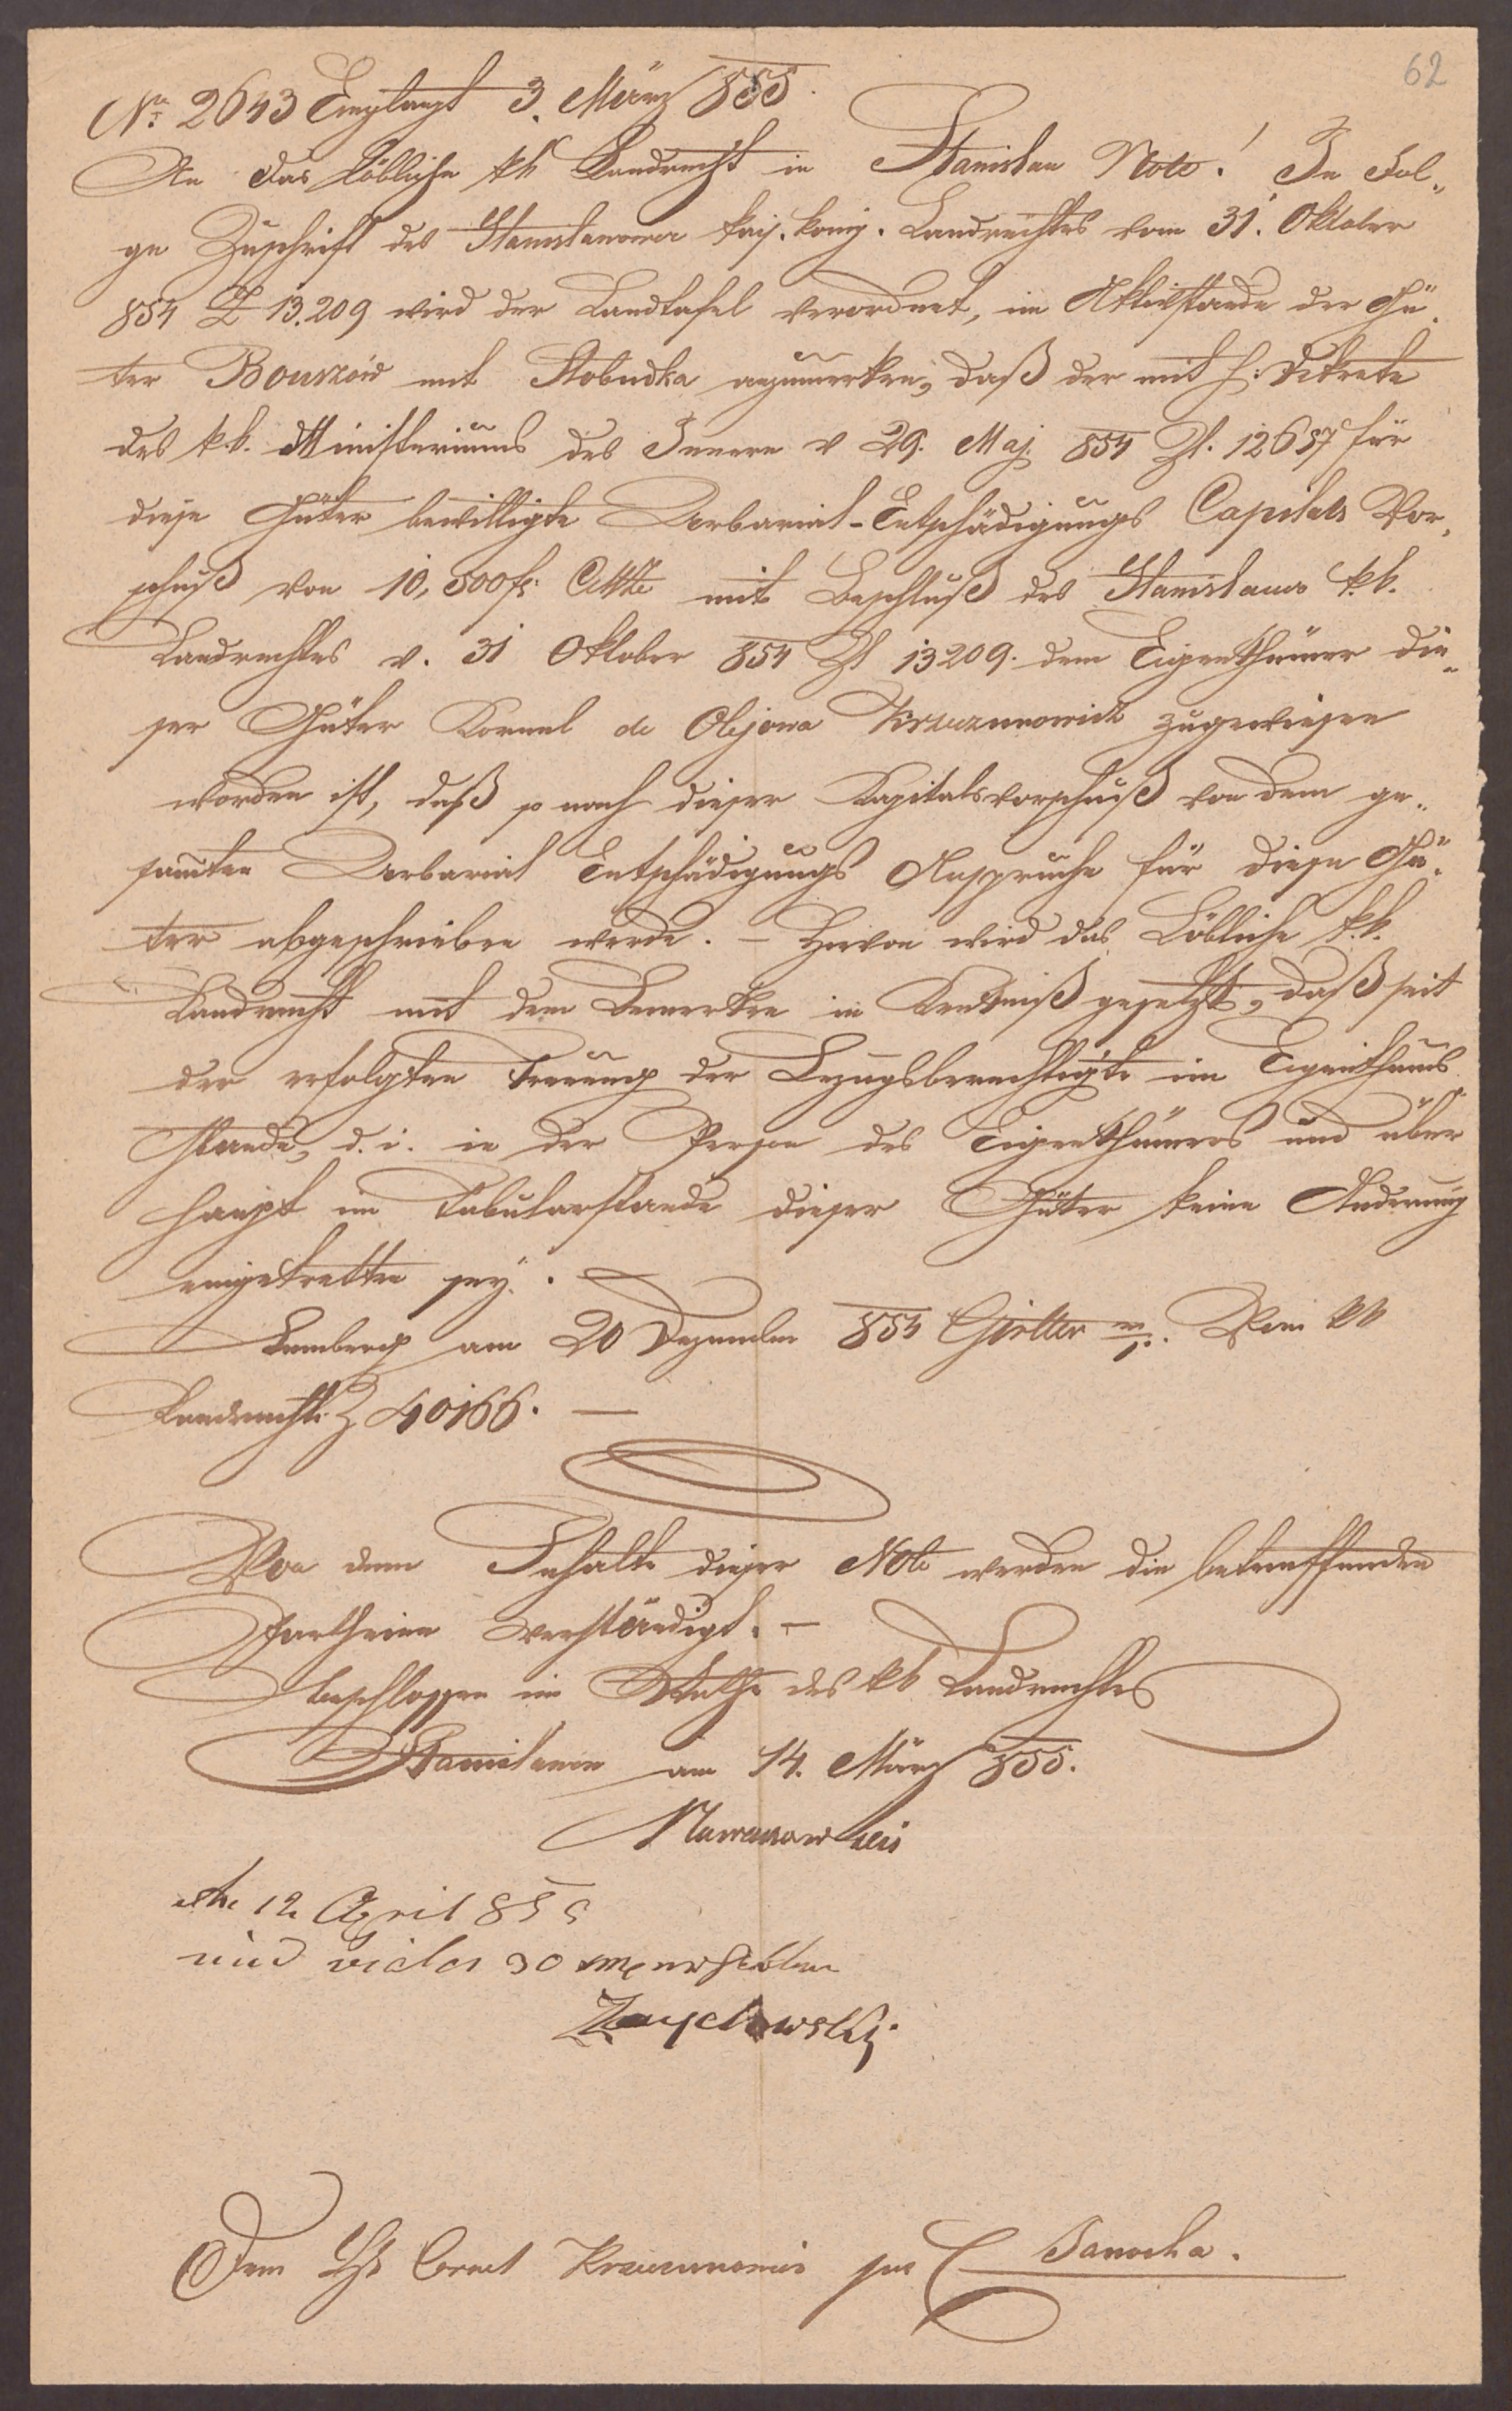 62
No. 2643 Emplangt 3. März 855.
An das Löbliche kk Landrecht in Stanislau Note! In Fol-
ge Zuschrift des Stanislauower kais. könig. Landrechtes vom 31. Oktober
854 Z 13.209 wird der Landtafel verordnet, im Aktivstande der Gü-
ter Bouszow mit Slobudka anzumerken, daß der mit h. Dekrete
des k.k. Ministeriums des Innern v 29. Maj. 854 Zl. 12687 für
diese Güter bewilligte Urbarial-Entschädigungs Capitals Vor-
schuß von 10,500 fr. CMze mit Beschluß des Stanislauer k.k.
Landrechtes v. 31 Oktober 854 Zl 13209. dem Eigenthümer die-
ser Güter Kornel de Olejowa Krzeczunowicz zugewiesen
worden ist, daß so nach dieser Kapitalsvorschuß von dem ge-
sammten Urbarial Entschädigungs Anspruche für diese Gü-
ter abgeschrieben werde. — Hievon wird das Löbliche k.k.
Landrecht mit dem Bemerken in Kentniß gesetzt, daß seit
der erfolgten Trennung der Bezugsberechtigte im Eigenthums
Stande, d. i. in der Person des Eigenthümers und über
haupt im Tabularstande dieser Güter keine Änderung
eingetretten sey. —
Lemberg am 20 Dezember 854 m/p. Vom kk
Landrechte Z 40166. —
Von dem Inhalte dieser Note werden die betreffenden
Partheien verständigt. —
beschlossen im Rathe des kk Landrechtes
Stanislau am 14. März 855.
12 April 855
und 30
Dem Hr Cornel Krzeczunowicz Janocha.